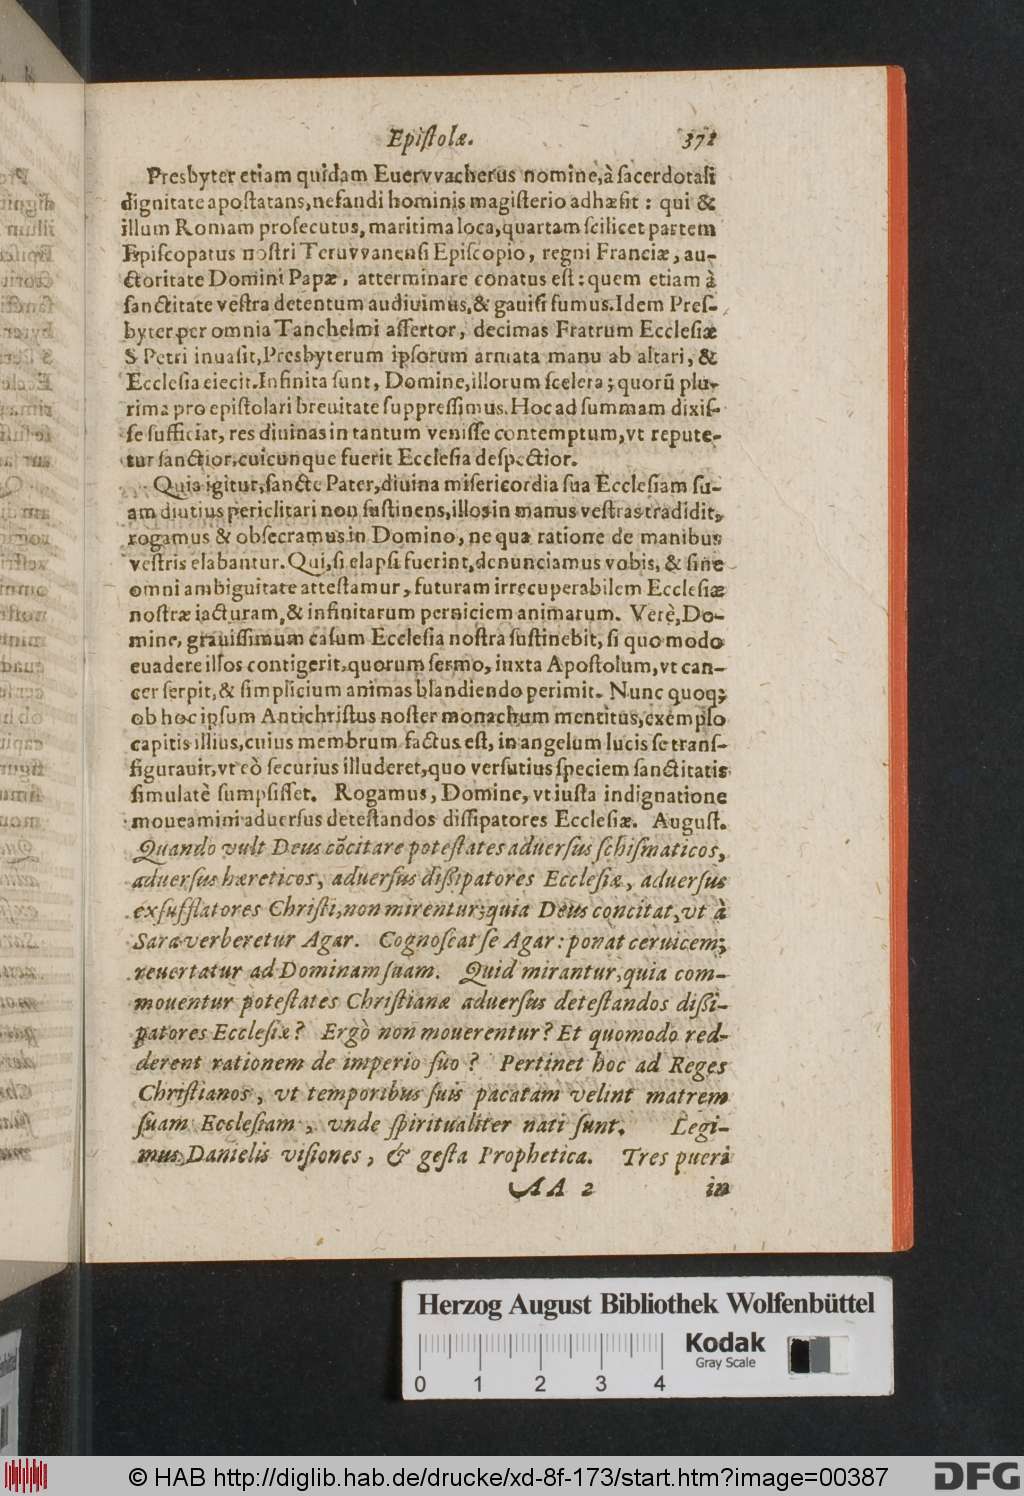 Epistolæ. 371
Presbyter etiam quidam Euervvacherus nomine, à sacerdotali
dignitate apostatans, nefandi hominis magisterio adhæsit : qui &
illum Romam prosecutus, maritima loca, quartam scilicet partem
Episcopatus nostri Teruvvanensi Episcopio, regni Franciæ, au-
ctoritate Domini Papæ, atterminare conatus est : quem etiam à
sanctitate vestra detentum audiuimus, & gauisi sumus. Idem Pres-
byter per omnia Tanchelmi assertor, decimas Fratrum Ecclesiæ
S Petri inuasit, Presbyterum ipsorum armata manu ab altari, &
Ecclesia eiecit. Infinita sunt, Domine, illorum scelera ; quorũ plu-
rima pro epistolari breuitate suppressimus. Hoc ad summam dixis-
se sufficiat, res diuinas in tantum venisse contemptum, vt repute-
tur sanctior, cuicunque fuerit Ecclesia despectior.
Quia igitur, sancte Pater, diuina misericordia sua Ecclesiam su-
am diutius periclitari non sustinens, illos in manus vestras tradidit,
rogamus & obsecramus in Domino, ne qua ratione de manibus
vestris elabantur. Qui, si elapsi fuerint, denunciamus vobis, & sine
omni ambiguitate attestamur, futuram irrecuperabilem Ecclesiæ
nostræ iacturam, & infinitarum perniciem animarum. Verè, Do-
mine, grauissimum casum Ecclesia nostra sustinebit, si quo modo
euadere illos contigerit, quorum sermo, iuxta Apostolum, vt can-
cer serpit, & simplicium animas blandiendo perimit. Nunc quoq;
ob hoc ipsum Antichristus noster monachum mentitus, exemplo
capitis illius, cuius membrum factus est, in angelum lucis se trans-
figurauit, vt eò securius illuderet, quo versutius speciem sanctitatis
simulatè sumpsisset. Rogamus, Domine, vt iusta indignatione
moueamini aduersus detestandos dissipatores Ecclesiæ. August.
Quando vult Deus cõcitare potestates aduersus schismaticos,
aduersus hæreticos, aduersus dissipatores Ecclesiæ, aduersus
exsufflatores Christi, non mirentur; quia Deus concitat, vt à
Sara verberetur Agar. Cognoscat se Agar : ponat ceruicem;
reuertatur ad Dominam suam. Quid mirantur, quia com-
mouentur potestates Christianæ aduersus detestandos dissi-
patores Ecclesiæ ? Ergò non mouerentur ? Et quomodo red-
derent rationem de imperio suo ? Pertinet hoc ad Reges
Christianos, vt temporibus suis pacatam velint matrem
suam Ecclesiam, vnde spiritualiter nati sunt. Legi-
mus Danielis visiones, & gesta Prophetica. Tres pueri
AA 2 in
Herzog August Bibliothek Wolfenbüttel
Kodak
Gray Scale
0 1 2 3 4
© HAB http://diglib.hab.de/drucke/xd-8f-173/start.htm?image=00387
DFG